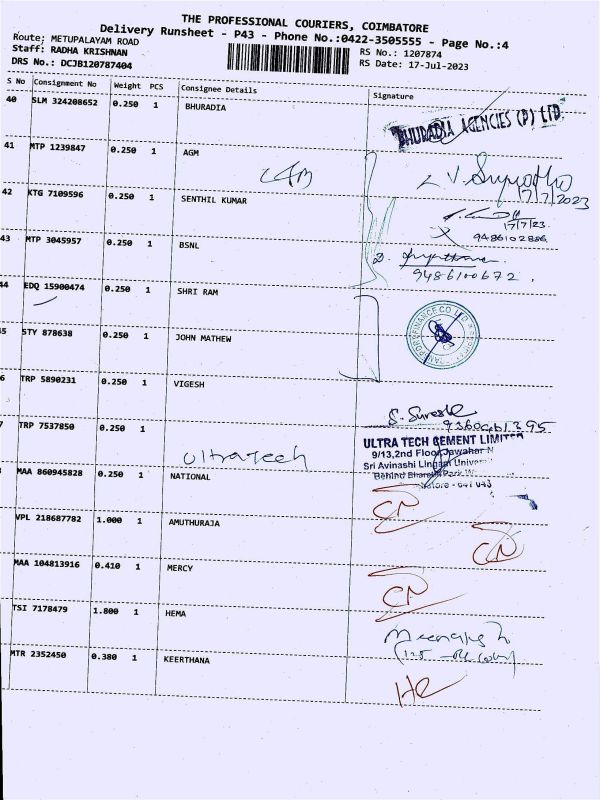 THE PROFESSIONAL COURIERS, COIMBATORE
Delivery Runsheet - P43 - Phone No.:0422-3505555 - Page No.:4
Route; METUPALAYAM ROAD
Staff: RADHA KRISHNAN
RS No.: 1207874
DRS No.: DCJB120787404
RS Date: 17-Jul-2023
S No Consignment No Weight PCS Consignee Details Signature
40 SLM 324208652 0.250 1 BHURADIA
BHURADIA AGENCIES (P) LTD.
41 MTP 1239847 0.250 1 AGM
17/7/2023
42 KTG 7109596 0.250 1 SENTHIL KUMAR
17/7/23
9486102886
43 MTP 3045957 0.250 1 BSNL
9486100672.
44 EDQ 15900474 0.250 1 SHRI RAM
5 STY 878638 0.250 1 JOHN MATHEW
6 TRP 5890231 0.250 1 VIGESH
S. Suresh
7 TRP 7537850 0.250 1
Ultratech
ULTRA TECH CEMENT LIMITED
9/13,2nd Floor,Jawahar N
Sri Avinashi Lingam Univer
Behind Bharathi Park
MAA 860945828 0.250 1 NATIONAL
CN
VPL 218687782 1.000 1 AMUTHURAJA
CN
MAA 104813916 0.410 1 MERCY
CN
TSI 7178479 1.800 1 HEMA
MTR 2352450 0.380 1 KEERTHANA